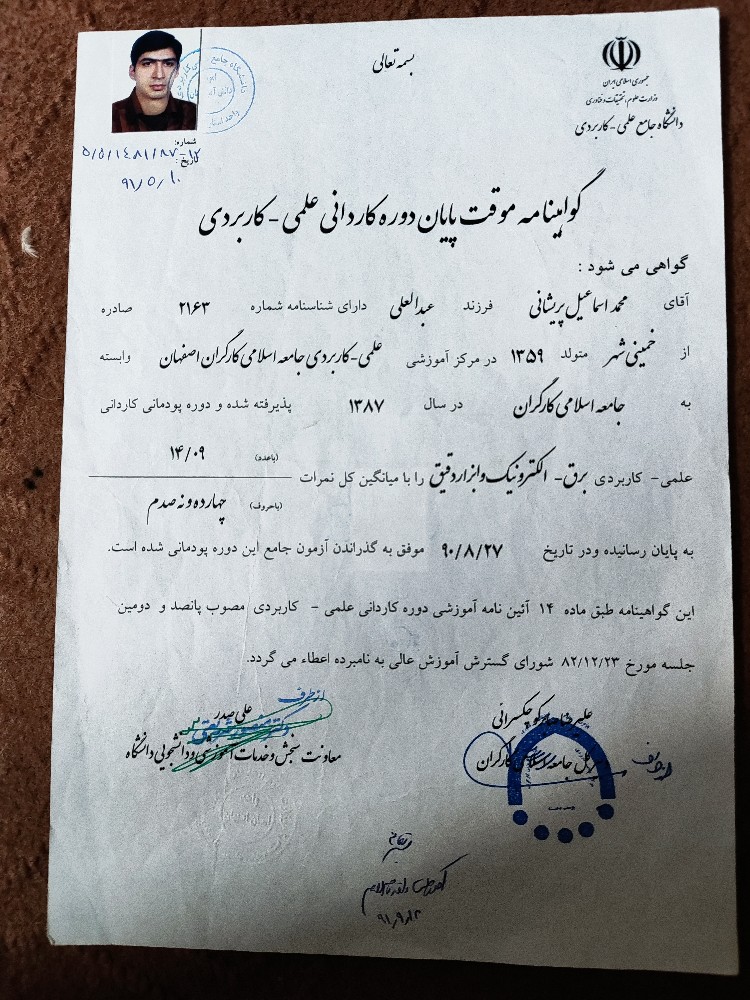 بسمه تعالی
جمهوری اسلامی ایران
وزارت علوم، تحقیقات و فناوری
دانشگاه جامع علمی - کاربردی
شماره:
۵/۵/۱۴۸۱/۸۷-۱۲
تاریخ:
۹۱/۵/۱۰
گواهینامه موقت پایان دوره کاردانی علمی - کاربردی
گواهی می شود :
آقای محمد اسماعیل پریشانی فرزند عبدالعلی دارای شناسنامه شماره ۲۱۶۳ صادره
از خمینی شهر متولد ۱۳۵۹ در مرکز آموزشی علمی - کاربردی جامعه اسلامی کارگران اصفهان وابسته
به جامعه اسلامی کارگران در سال ۱۳۸۷ پذیرفته شده و دوره پودمانی کاردانی
(باعدد) ۱۴/۰۹
علمی - کاربردی برق - الکترونیک و ابزار دقیق را با میانگین کل نمرات
(باحروف) چهارده و نه صدم
به پایان رسانیده ودر تاریخ ۹۰/۸/۲۷ موفق به گذراندن آزمون جامع این دوره پودمانی شده است.
این گواهینامه طبق ماده ۱۴ آئین نامه آموزشی دوره کاردانی علمی - کاربردی مصوب پانصد و دومین
جلسه مورخ ۸۲/۱۲/۲۳ شورای گسترش آموزش عالی به نامبرده اعطاء می گردد.
از طرف
علی صدر
معاونت سنجش و خدمات آموزشی و دانشجویی دانشگاه
علیرضا
جامعه اسلامی کارگران